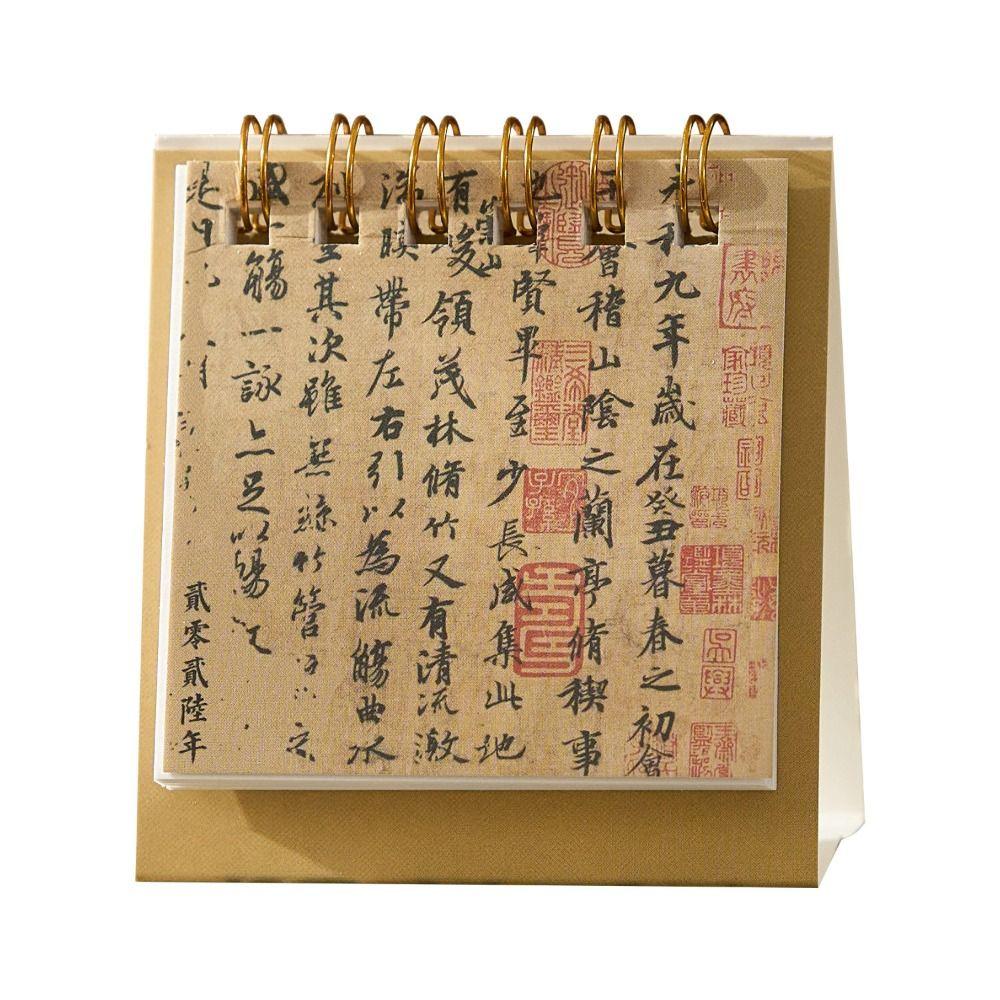 永和九年歲在癸丑暮春之初會
會稽山陰之蘭亭脩稧事
也羣賢畢至少長咸集此地
有崇山峻領茂林脩竹又有清流激
湍暎帶左右引以為流觴曲水
列坐其次雖無絲竹管弦之
盛一觴一詠亦足以暢
是日也
貳零貳陸年
三希堂精鑑璽
宜子孫
家珍藏
吳興